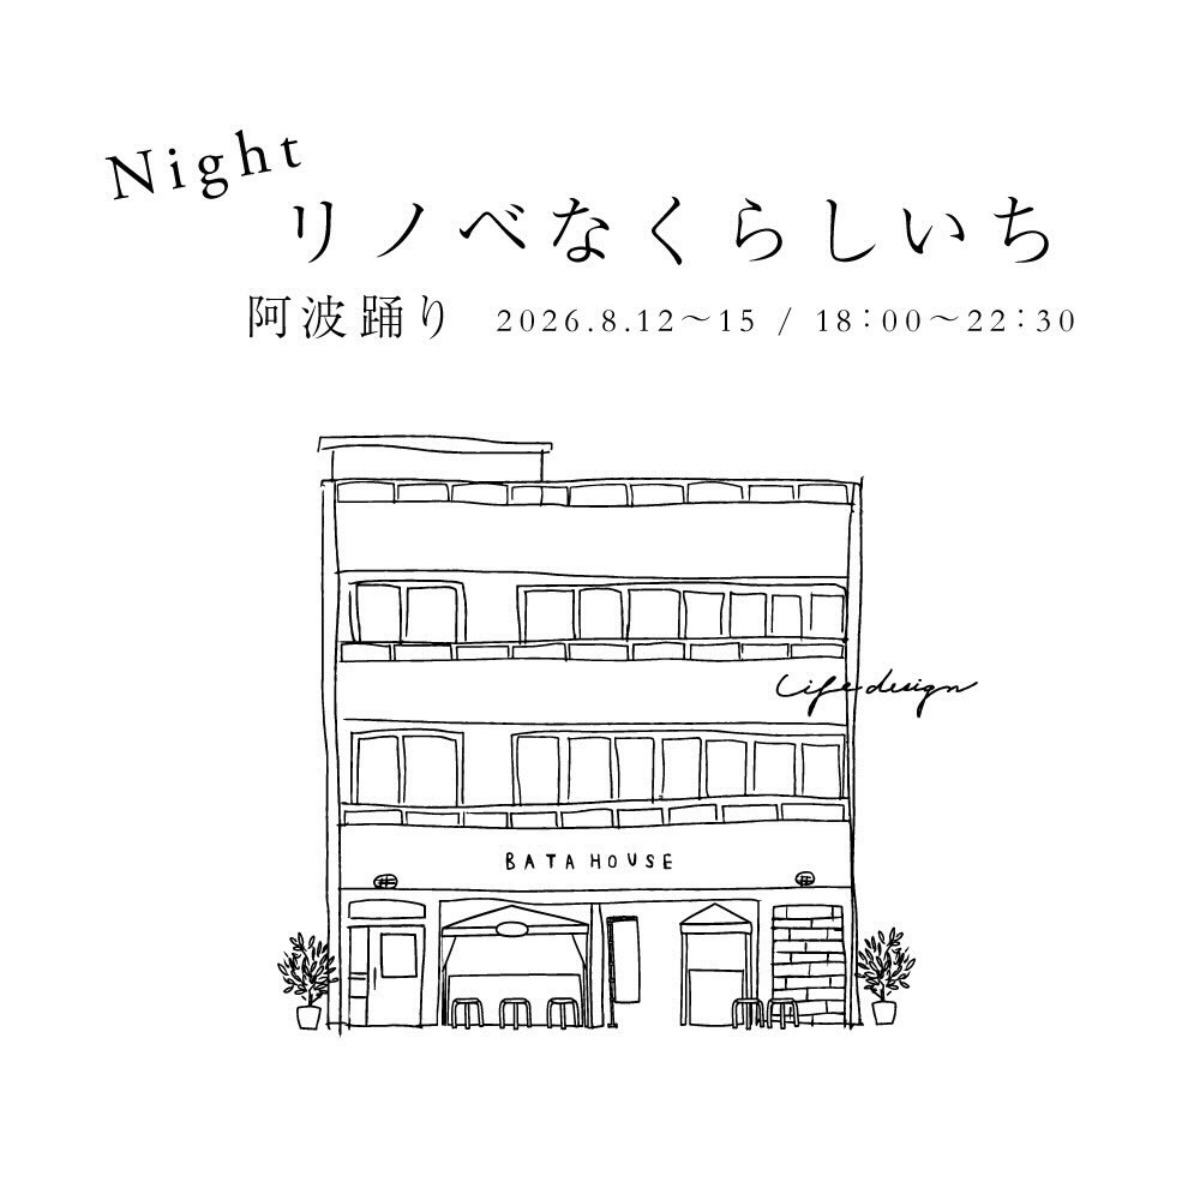 Night
リノベなくらしいち
阿波踊り 2026.8.12〜15 / 18:00〜22:30
Life design
BATA HOUSE